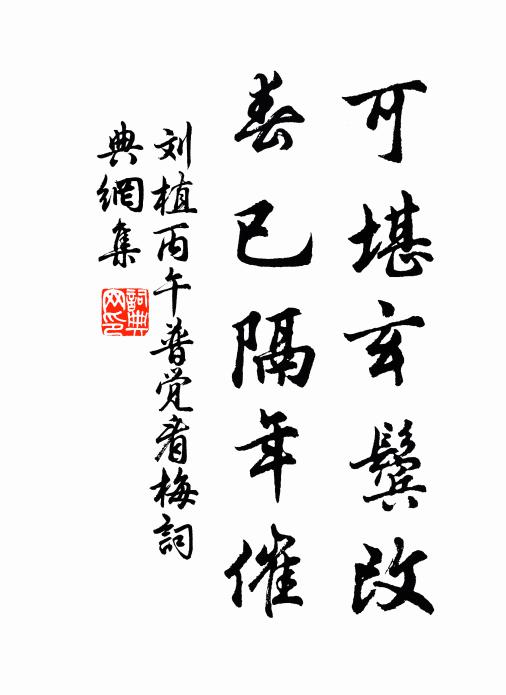 可堪玄鬓改
春已隔年催
刘植丙午普觉看梅詞
典網集
詞典
网印